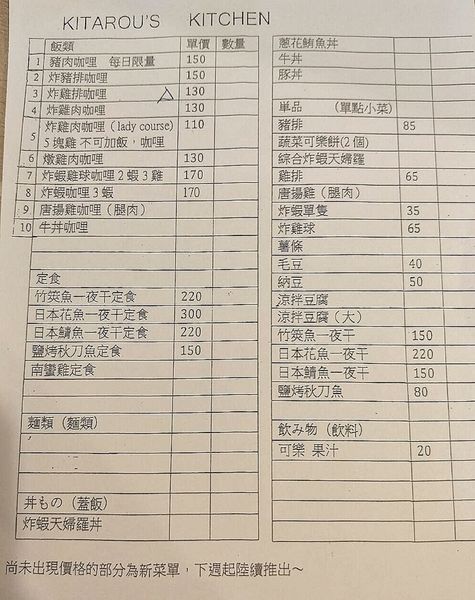 KITAROU'S KITCHEN
飯類 單價 數量
1 豬肉咖哩 每日限量 150
2 炸豬排咖哩 150
3 炸雞排咖哩 130
4 炸雞肉咖哩 130
5 炸雞肉咖哩 (lady course) 110
5 塊雞 不可加飯，咖哩
6 燉雞肉咖哩 130
7 炸蝦雞球咖哩 2 蝦 3 雞 170
8 炸蝦咖哩 3 蝦 170
9 唐揚雞咖哩（腿肉）
10 牛丼咖哩
定食
竹筴魚一夜干定食 220
日本花魚一夜干定食 300
日本鯖魚一夜干定食 220
鹽烤秋刀魚定食 150
南蠻雞定食
麵類（麵類）
丼もの（蓋飯）
炸蝦天婦羅丼
蔥花鮪魚丼
牛丼
豚丼
單品 （單點小菜）
豬排 85
蔬菜可樂餅(2 個)
綜合炸蝦天婦羅
雞排 65
唐揚雞（腿肉）
炸蝦單隻 35
炸雞球 65
薯條
毛豆 40
納豆 50
涼拌豆腐
涼拌豆腐（大）
竹筴魚一夜干 150
日本花魚一夜干 220
日本鯖魚一夜干 150
鹽烤秋刀魚 80
飲み物（飲料）
可樂 果汁 20
尚未出現價格的部分為新菜單，下週起陸續推出～